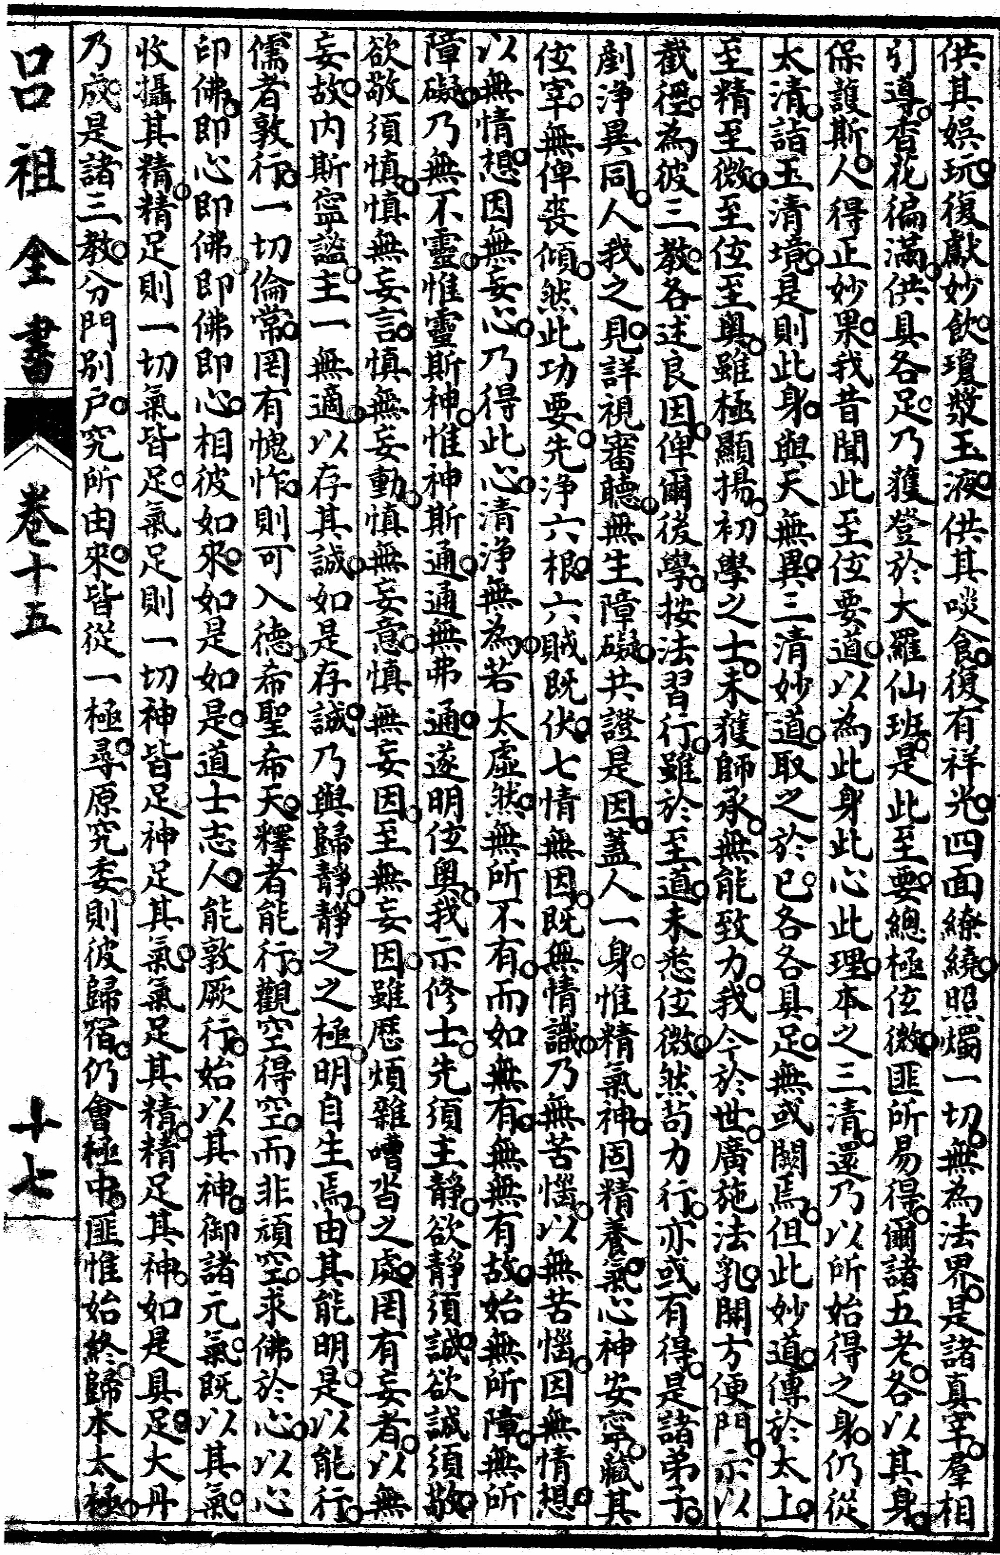 供其娛玩復獻妙飲瓊漿玉液供其啖食復有祥光四面繚繞照燭一切無為法界是諸真宰羣相
引導香花徧滿供具各足乃蒦登於大羅仙班是此至要總極位微匪所易得爾諸五老各以其身
保護斯人得正妙果我昔聞此至位要道以為此身此心此理本之三清還乃以所始得之身仍從
太清詣玉清境是則此身與天無異三清妙道取之於已各各具足無或闕焉但此妙道傳於太上
至精至微至位至奧雖極顯揚初學之士未蒦師承無能致力我今於世廣施法乳開方便門示以
截徑為彼三教各述良因俾爾後學按法習行雖於至道未悉位微然茍力行亦或有得是諸弟子
剷淨異同人我之見詳視審聽無生障礙共證是因蓋人一身惟精氣神固精養氣心神安寧臟其
位宰無俾喪傾然此功要先淨六根六賊既伏七情無因既無情識乃無苦惱以無苦惱因無情想
以無情想因無妄心乃得此心清淨無為若太虛然無所不有而如無有無無有故始無所障無所
障礙乃無不靈惟靈斯神惟神斯通通無弗通遂明位奧我示修士先須主靜欲靜須誠欲誠須敬
欲敬須慎慎無妄言慎無妄動慎無妄意慎無妄因至無妄因雖歷煩雜嘈沓之處罔有妄者以無
妄故內斯寍謐主一無適以存其誠如是存誠乃與歸靜靜之之極明自生焉由其能明是以能行
儒者敦行一切倫常罔有愧怍則可入德希聖希天釋者能行觀空得空而非頑空求佛於心以心
印佛即心即佛即佛即心相彼如來如是如是道士志人能敦厥行始以其神御諸元氣既以其氣
收攝其精精足則一切氣皆足氣足則一切神皆足神足其氣氣足其精精足其神如是具足大丹
乃成是諸三教分門別户究所由來皆從一極尋原究委則彼歸宿仍會極中匪惟始終歸本太極
呂祖全書
卷十五
十七